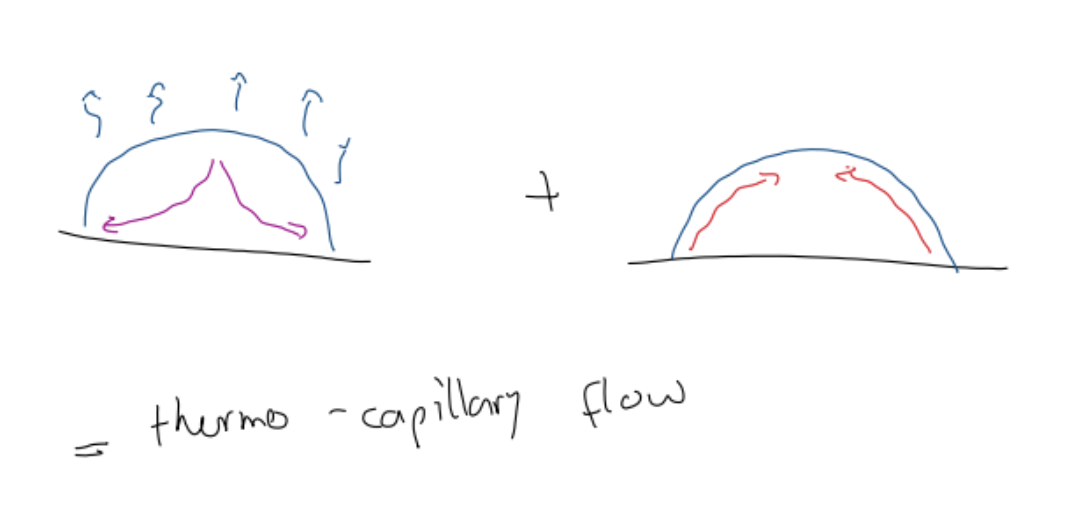 +
= thermo - capillary flow